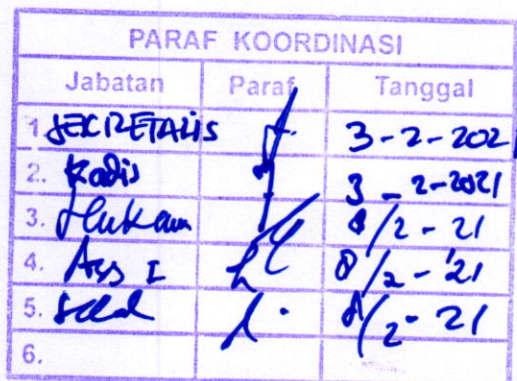 PARAF KOORDINASI
Jabatan Paraf Tanggal
1. SEKRETARIS 3-2-2021
2. Kadis 3-2-2021
3. Hukum 8/2-21
4. Ass I 8/2-'21
5. 8/2-21
6.